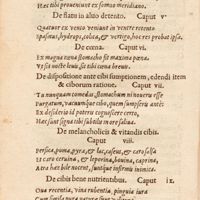 Hæc tibi proveniunt ex somno meridiano.
De flatu in alvo detento. Caput v
Quatuor ex vento veniunt in ventre retento
spasmus, hydrops, colica, & vertigo, hoc res probat ipsa.
De cœna. Caput vi.
Ex magna cœna stomacho fit maxima pœna.
Ut sis nocte levis sit tibi cœna brevis.
De dispositione ante cibi sumptionem, edendi item
& ciborum ratione. Caput vii.
Tu nunquam comedas stomachum ni noveris esse
Purgatum, vacuumque cibo, quem sumpseris ante:
Ex desiderio id poteris cognoscere certo,
Hæc sunt signa tibi subtilis in ore saliva.
De melancholicis & vitandis cibis.
Caput viii.
Persica, poma, pyra, & lac, caseus, & caro salsa
Et caro cervina, & leporina, bovina, caprina,
Atra hæc bile nocent, suntque infirmis inimica.
De cibis bene nutrientibus. Caput ix.
Ova recentia, vina rubentia, pinguia iura
Cum simila pura naturæ sunt